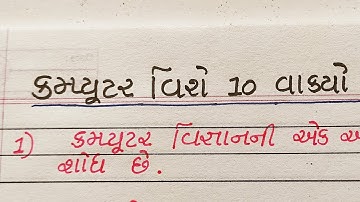 કમ્પ્યૂટર વિશે 10 વાક્યો
1) કમ્પ્યૂટર વિજ્ઞાનની એક
શોધ છે.